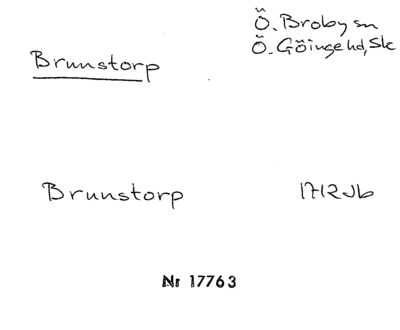 Ö. Broby sn
Ö. Göinge hd, Sk
Brunstorp
Brunstorp 1712 Jb
Nr 17763